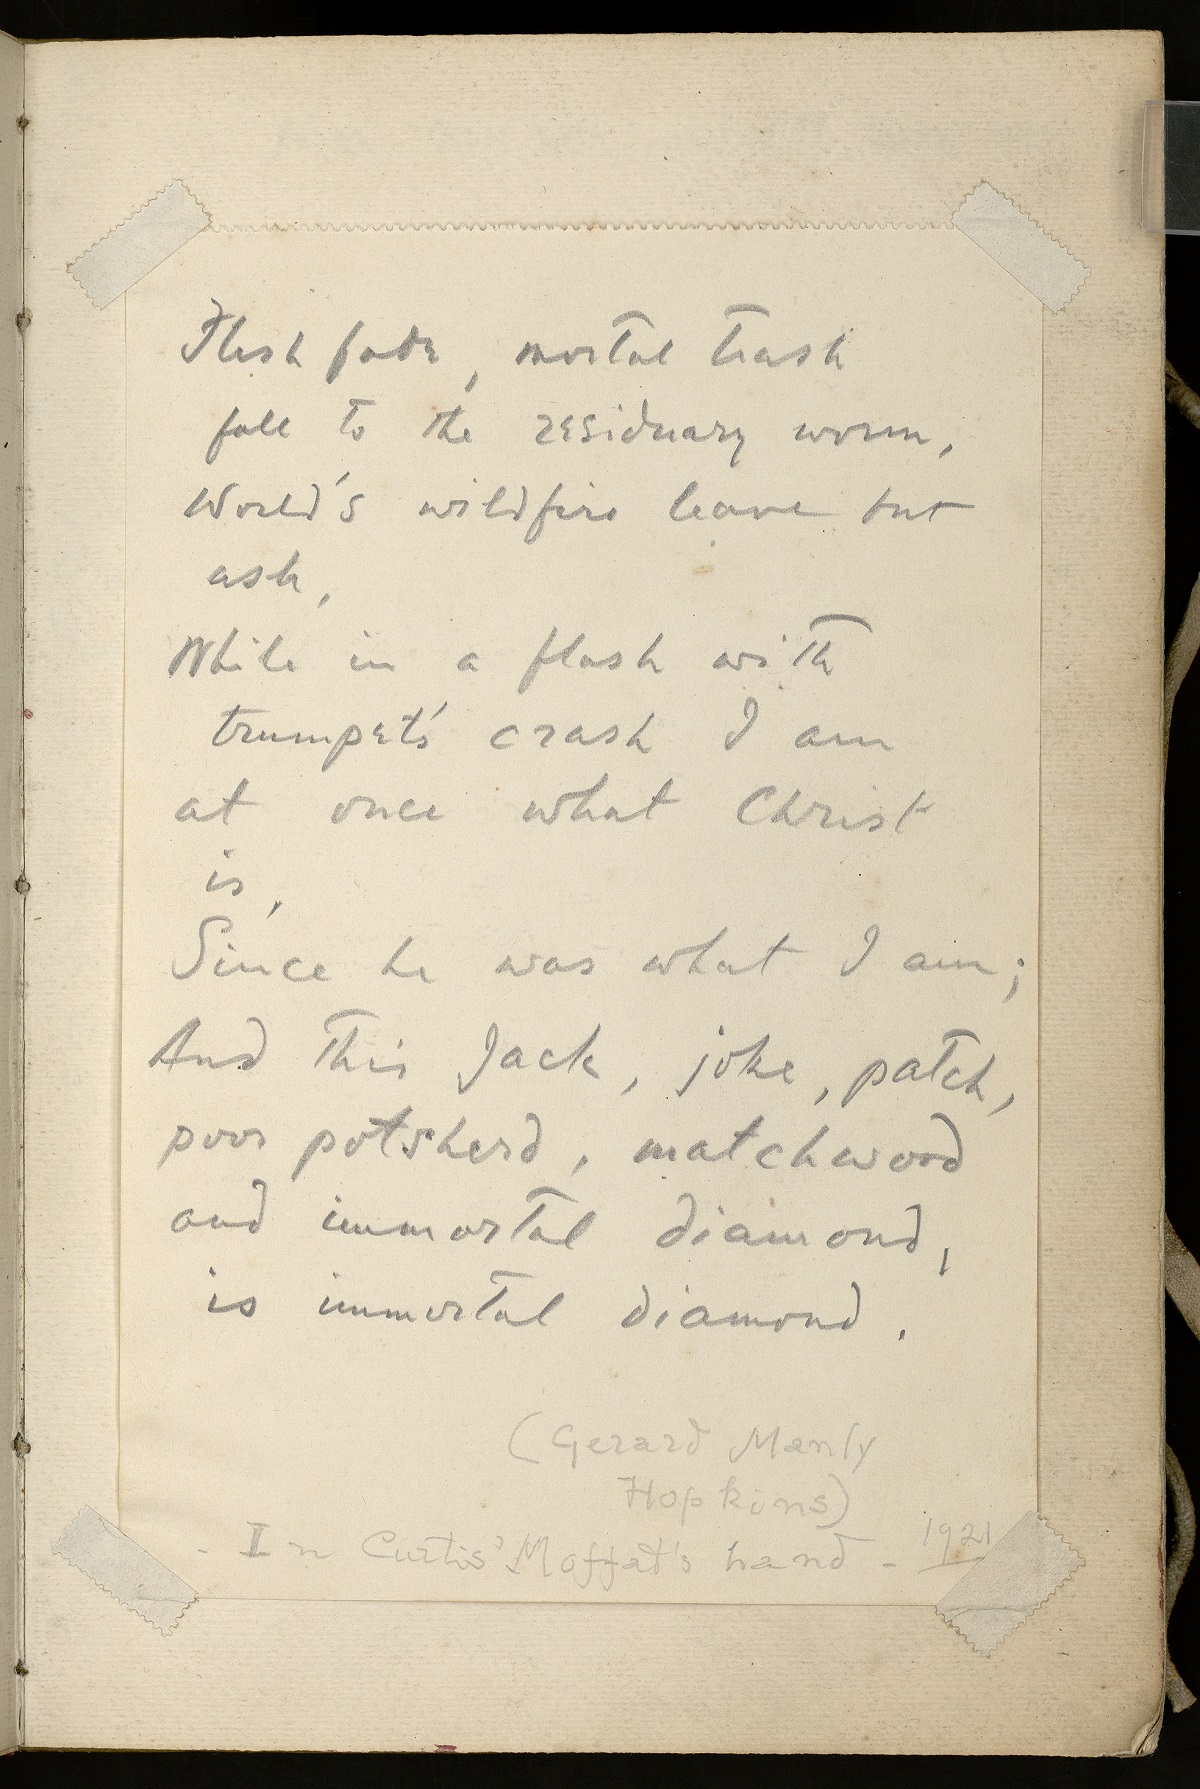 Flesh fade, mortal trash
fall to the residuary worm,
World's wildfire leave but
ash,
While in a flash with
trumpet's crash I am
at once what Christ
is,
Since he was what I am;
And this Jack, joke, patch,
poor potsherd, matchwood
and immortal diamond,
is immortal diamond.
(Gerard Manly
Hopkins)
- In Curtis' Moffat's hand - 1921